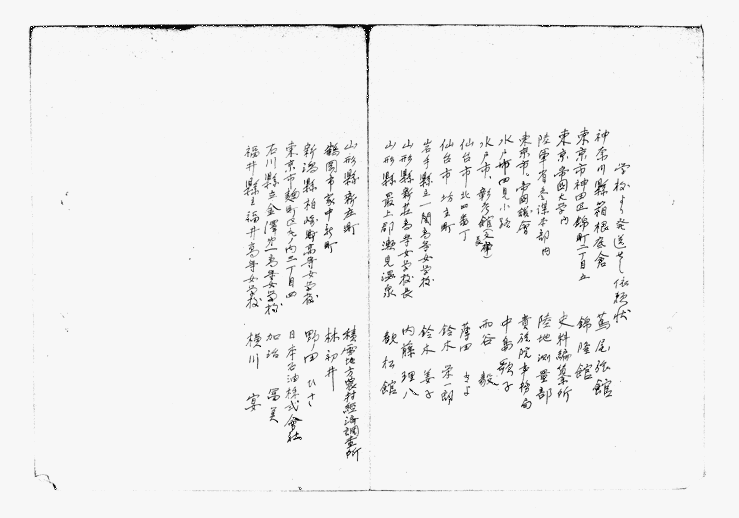 学校より発送せし依頼状
神奈川縣箱根底倉 蔦屋旅館
東京市神田区錦町二丁目五 錦隆館
東京帝国大学内 史料編纂所
陸軍省参謀本部内 陸地測量部
東京市、帝國議會 貴族院事務局
水戸市四見小路 中島歌子
水戸市、彰考館文庫長 雨谷 毅
仙台市北四番丁 薄田 きよ
仙台市 坊主町 鈴木 栄一郎
岩手縣立一関高等女学校 鈴木 姜子
山形縣新荘高等女学校長 内藤 理八
山形縣最上郡瀬見温泉 観松館
山形縣新庄町 積雪地方農村経済調査所
鶴岡市家中新町 林 初井
新潟縣柏崎町高等女学校 野田 ひさ
東京市麹町区丸ノ内二丁目四 日本石油株式會社
石川縣立金澤第一高等女学校 加治 冨美
福井縣立福井高等女学校 横川 宴